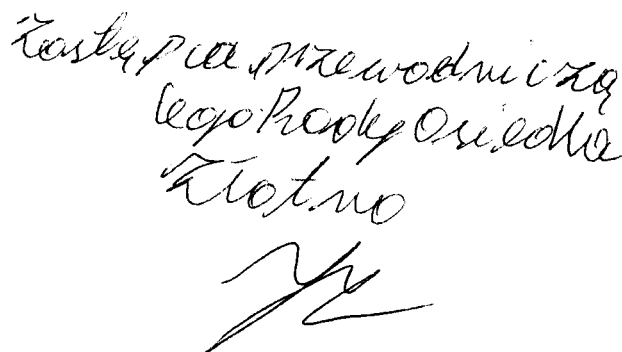 Zastępca przewodniczą
cego Rady Osiedla
Złotno